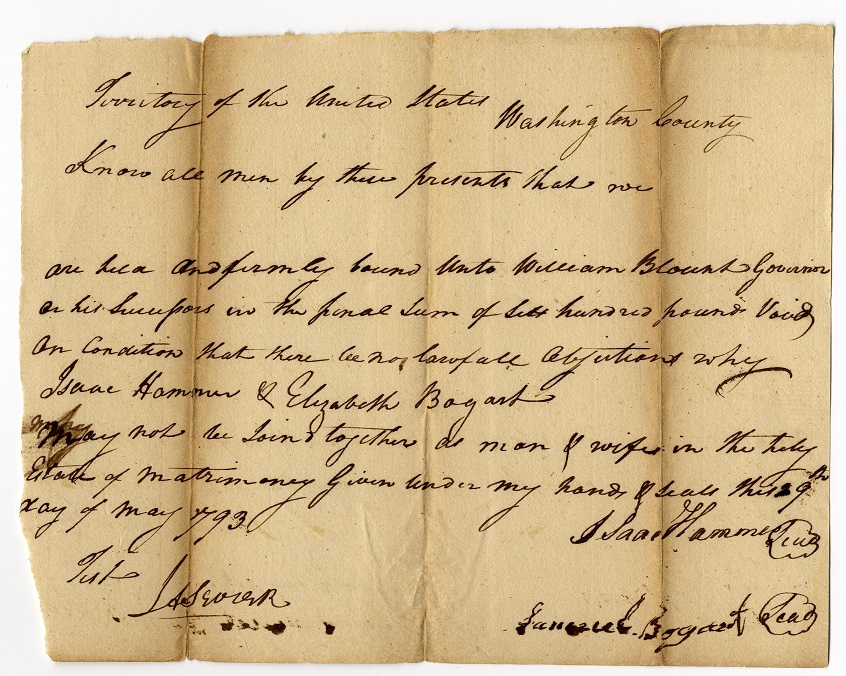 Territory of the United States
Washington County
Know all men by these presents that we
are held and firmly bound unto William Blount Governor
or his Successors in the penal Sum of hundred pounds Void
On Condition that there be no lawfull Objections why
Isaac Hammer & Elizabeth Bogart
May not be Joind together as man & wife in the holy
Estate of Matrimoney Given under my hands & seals this 29th
Day of May 1793
Isaac Hammer Seal
Test
JaSevier
Samuel Bogart Seal